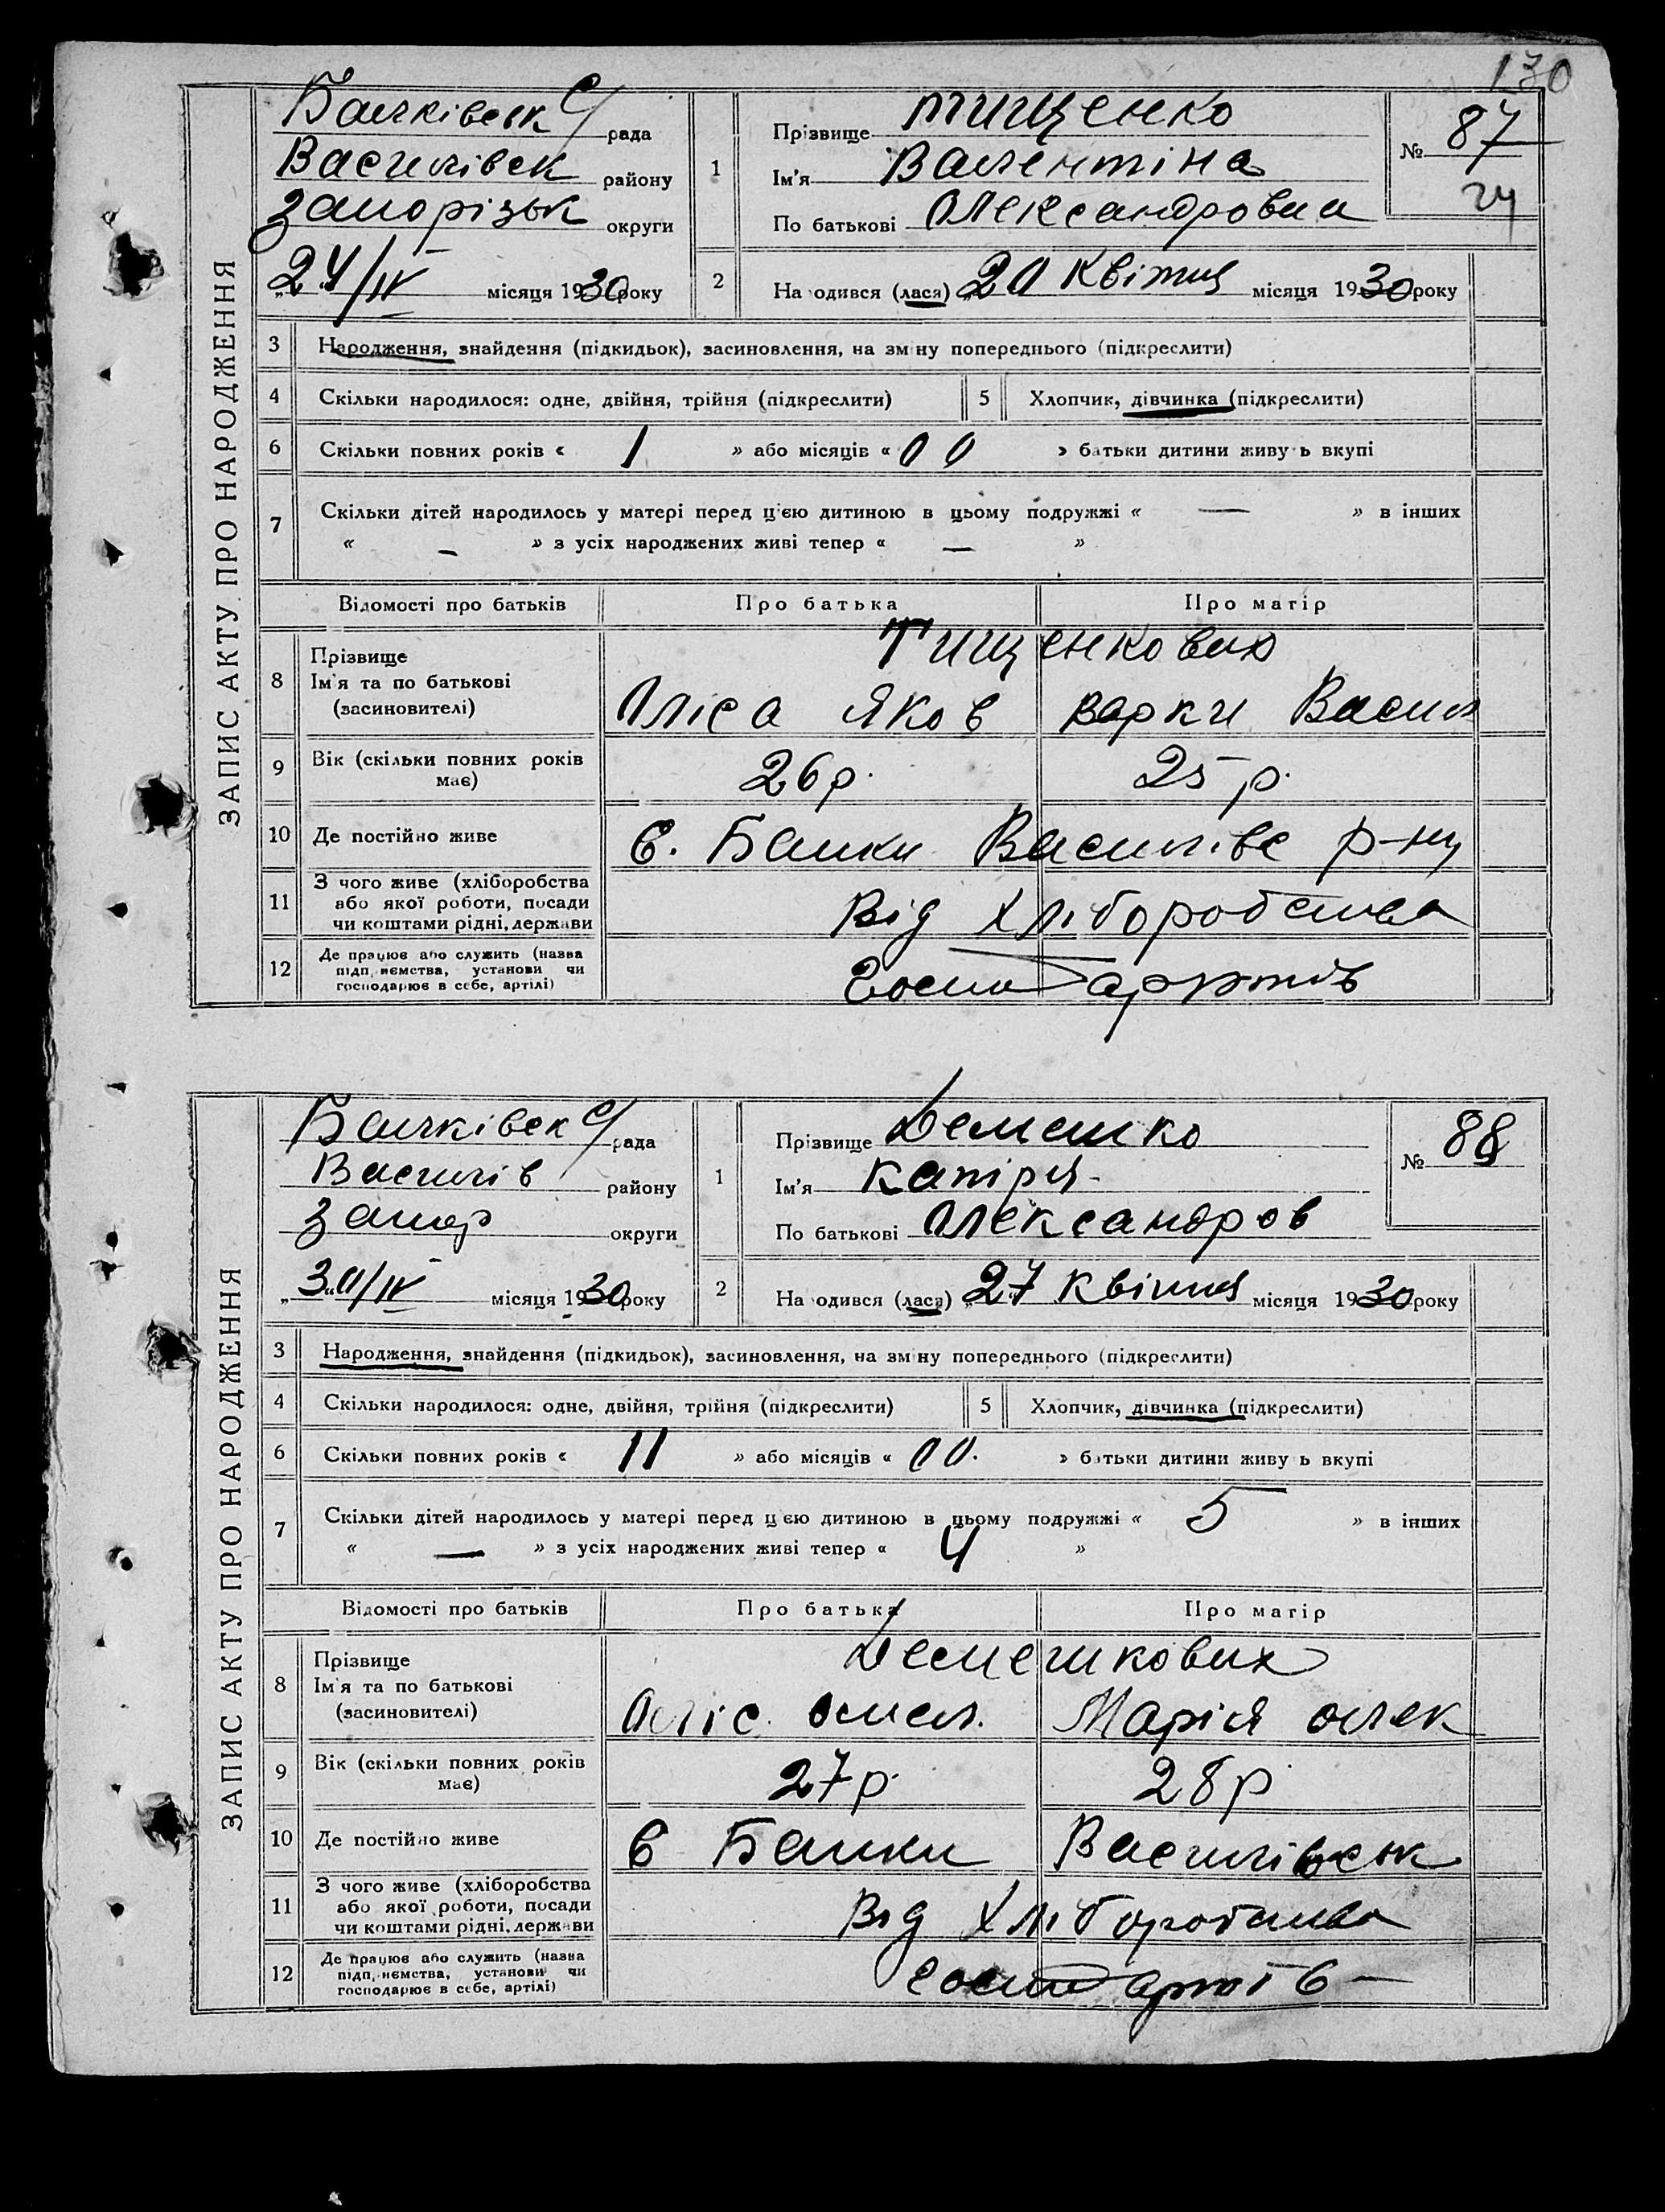 130
ЗАПИС АКТУ ПРО НАРОДЖЕННЯ
Балківськ с/рада
Василівськ району
Запорізьк округи
„24/IV місяця 1930 року
1 Прізвище Тищенко
Ім'я Валентіна
По батькові Олександровна
№ 87
2 Народився (лася) „20 Квітня місяця 1930 року
3 Народження, знайдення (підкидьок), засиновлення, на зміну попереднього (підкреслити)
4 Скільки народилося: одне, двійня, трійня (підкреслити) 5 Хлопчик, дівчинка (підкреслити)
6 Скільки повних років « 1 » або місяців « 00 » батьки дитини живуть вкупі
7 Скільки дітей народилось у матері перед ц'єю дитиною в цьому подружжі « — » в інших
« — » з усіх народжених живі тепер « — »
Відомості про батьків Про батька Про матір
8 Прізвище Тищенкових
Ім'я та по батькові
(засиновителі) Оліса Яков Варки Васил
9 Вік (скільки повних років має) 26 р. 25 р.
10 Де постійно живе С. Балки Василівс р-ну
11 З чого живе (хліборобства
або якої роботи, посади
чи коштами рідні, держави Від Хліборобства
12 Де працює або служить (назва
підприємства, установи чи
господарює в себе, артілі)
ЗАПИС АКТУ ПРО НАРОДЖЕННЯ
Балківськ с/рада
Василів району
Запор округи
„30/IV місяця 1930 року
1 Прізвище Демешко
Ім'я Катіря
По батькові Олександров
№ 88
2 Народився (лася) „27 Квітня місяця 1930 року
3 Народження, знайдення (підкидьок), засиновлення, на зміну попереднього (підкреслити)
4 Скільки народилося: одне, двійня, трійня (підкреслити) 5 Хлопчик, дівчинка (підкреслити)
6 Скільки повних років « 11 » або місяців « 00. » батьки дитини живуть вкупі
7 Скільки дітей народилось у матері перед ц'єю дитиною в цьому подружжі « 5 » в інших
« — » з усіх народжених живі тепер « 4 »
Відомості про батьків Про батька Про матір
8 Прізвище Демешкових
Ім'я та по батькові
(засиновителі) Оліс. Омел. Марія Олек
9 Вік (скільки повних років має) 27 р. 28 р
10 Де постійно живе С Балки Василівськ
11 З чого живе (хліборобства
або якої роботи, посади
чи коштами рідні, держави Від Хліборобства
12 Де працює або служить (назва
підприємства, установи чи
господарює в себе, артілі)